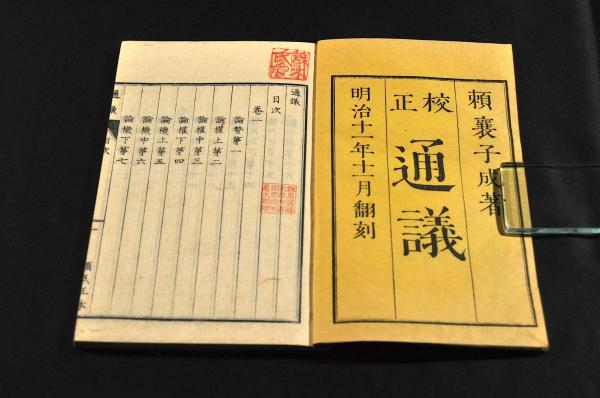 賴襄子成著
校正
通議
明治十一年十一月翻刻
通議
目次
卷一
論勢第一
論權上第二
論權中第三
論權下第四
論機上第五
論機中第六
論機下第七
通議
目次
賴氏正本